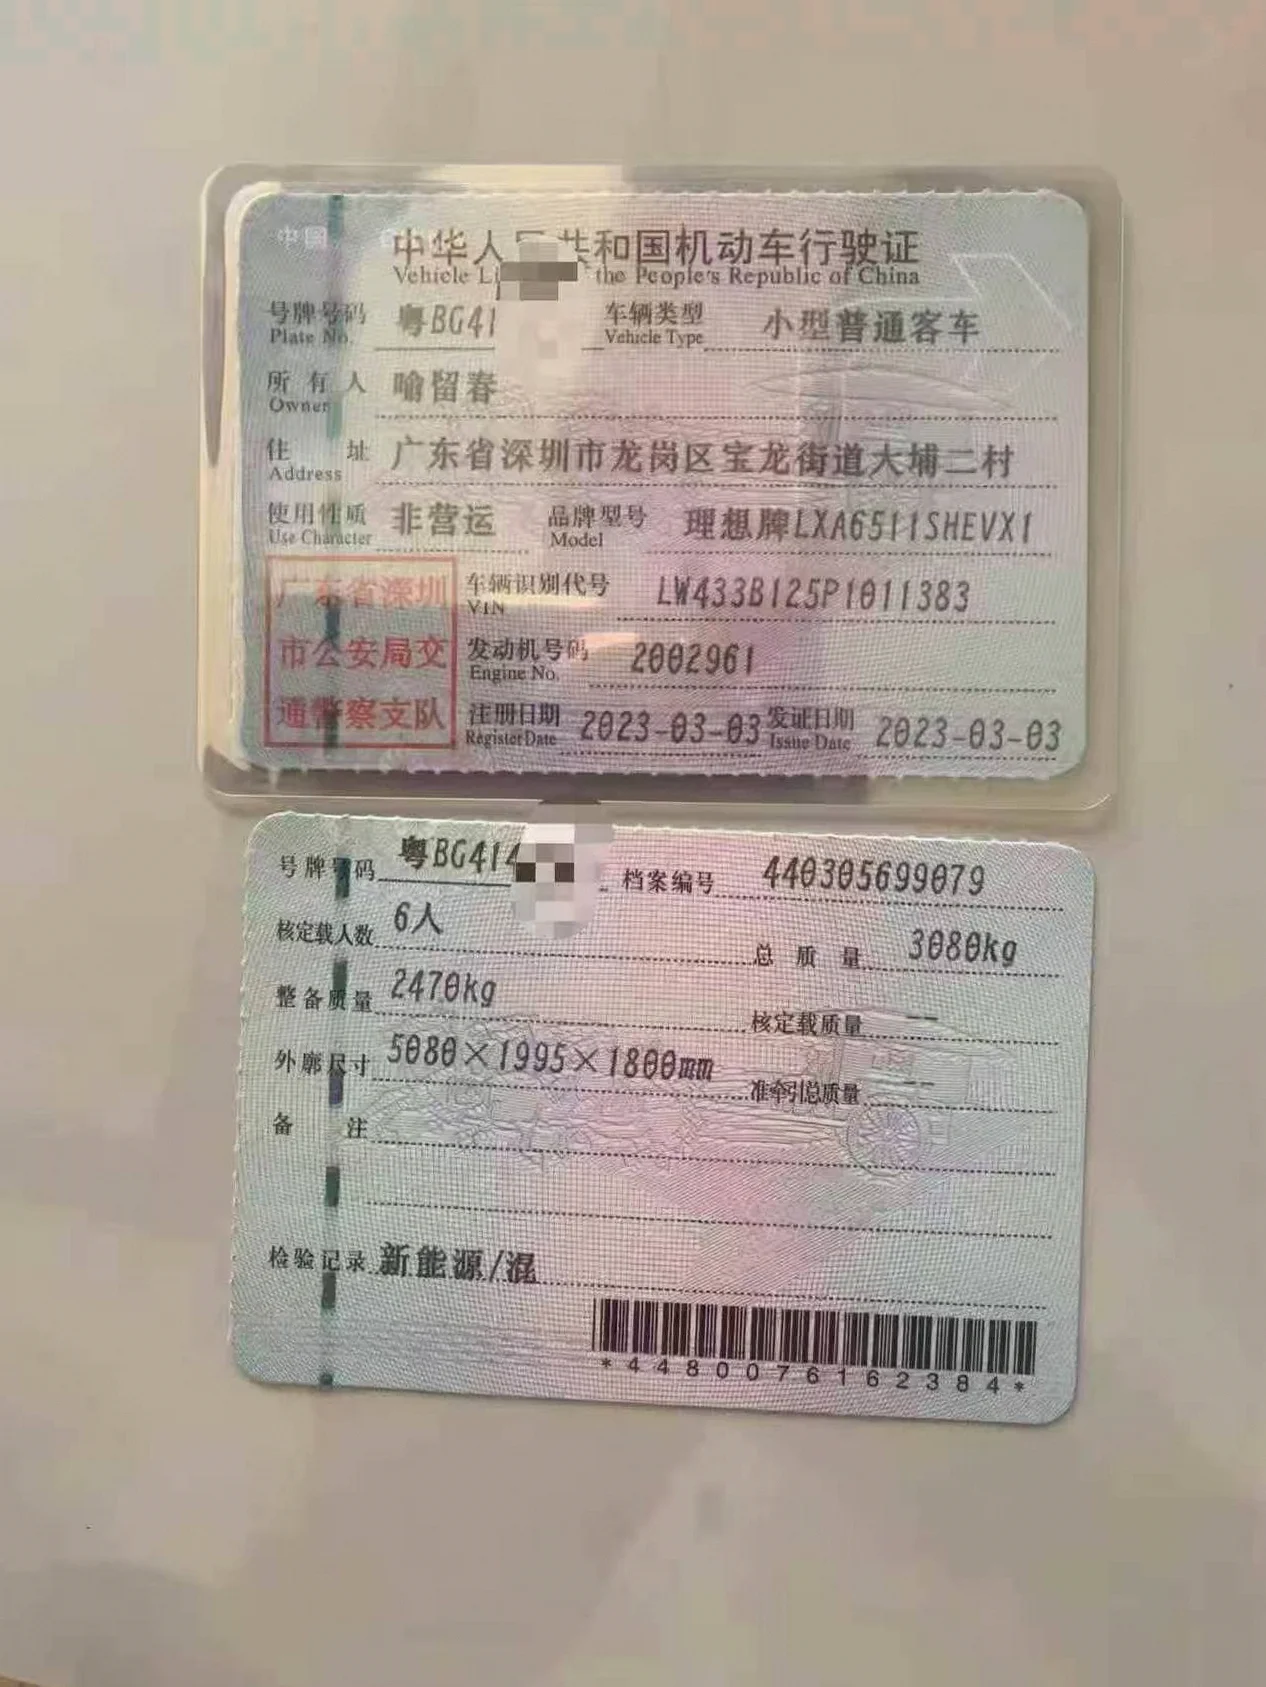 中华人民共和国机动车行驶证
Vehicle Li the People's Republic of China
号牌号码 粤BG41 车辆类型 小型普通客车
Plate No. Vehicle Type
所有人 喻留春
Owner
住址 广东省深圳市龙岗区宝龙街道大埔二村
Address
使用性质 非营运 品牌型号 理想牌LXA6511SHEVX1
Use Character Model
广东省深圳
市公安局交
通警察支队
车辆识别代号 LW433B125P1011383
VIN
发动机号码 2002961
Engine No.
注册日期 2023-03-03 发证日期 2023-03-03
Register Date Issue Date
号牌号码 粤BG414 档案编号 440305699079
核定载人数 6人 总质量 3080kg
整备质量 2470kg 核定载质量 --
外廓尺寸 5080×1995×1800mm 准牵引总质量 --
备注
检验记录 新能源/混
*4480076162384*